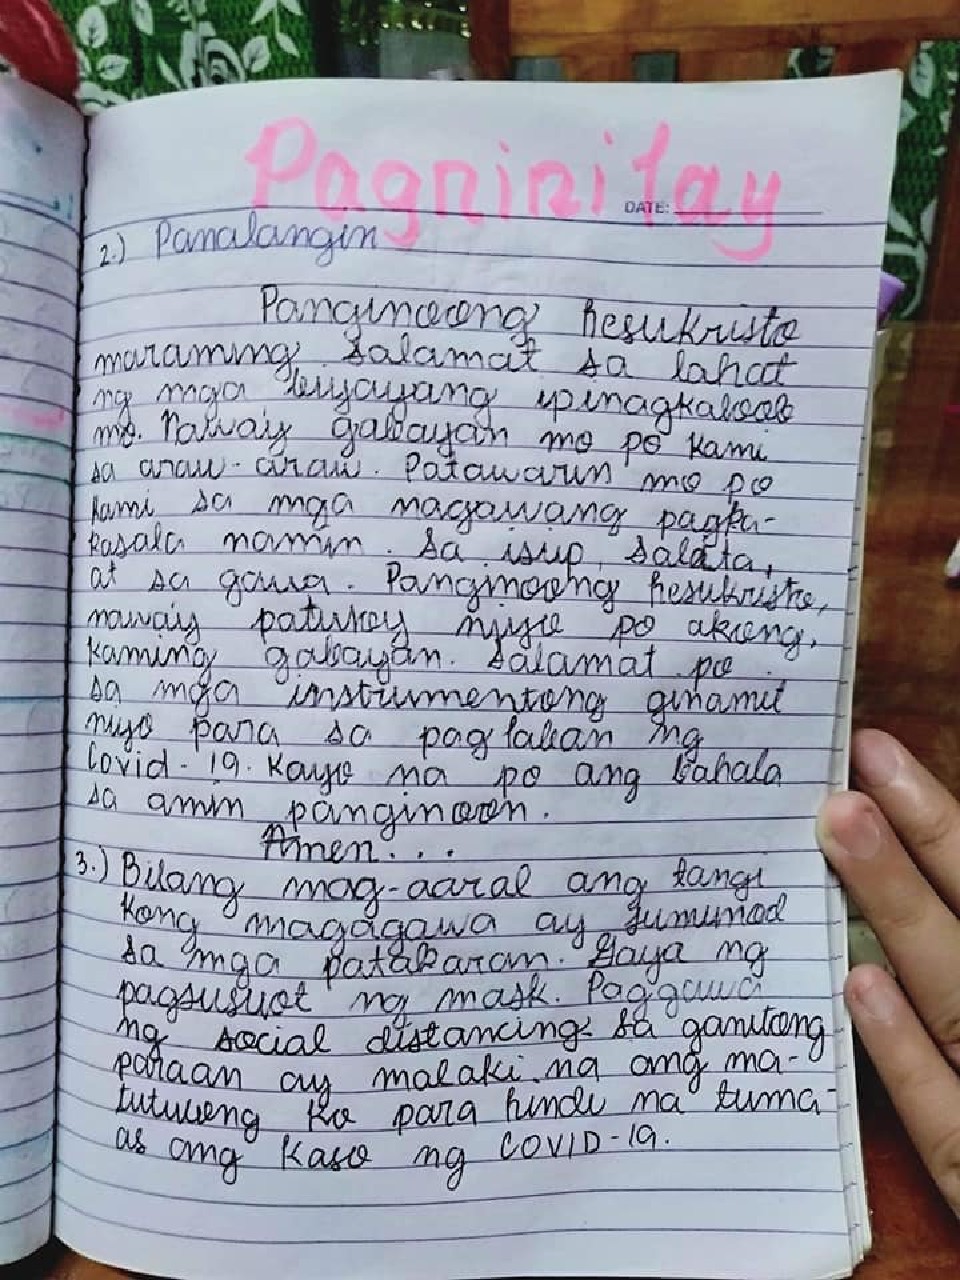 Pagninilay
DATE:
2.) Panalangin
Panginoong hesukristo
maraming salamat sa lahat
ng mga biyayang ipinagkaloob
mo. Naway gabayan mo po kami
sa araw-araw. Patawarin mo po
kami sa mga nagawang pagka-
kasala namin. Sa isip, salita,
at sa gawa. Panginoong hesukristo,
naway patuloy niyo po akong,
kaming gabayan. Salamat po
sa mga instrumentong ginamit
niyo para sa paglaban ng
Covid-19. Kayo na po ang bahala
sa amin panginoon.
Amen...
3.) Bilang mag-aaral ang tangi
kong magagawa ay sumunod
sa mga patakaran. Gaya ng
pagsusuot ng mask. Paggawa
ng social distancing. Sa ganitong
paraan ay malaki na ang ma-
tutulong ko para hindi na tuma-
as ang kaso ng COVID-19.